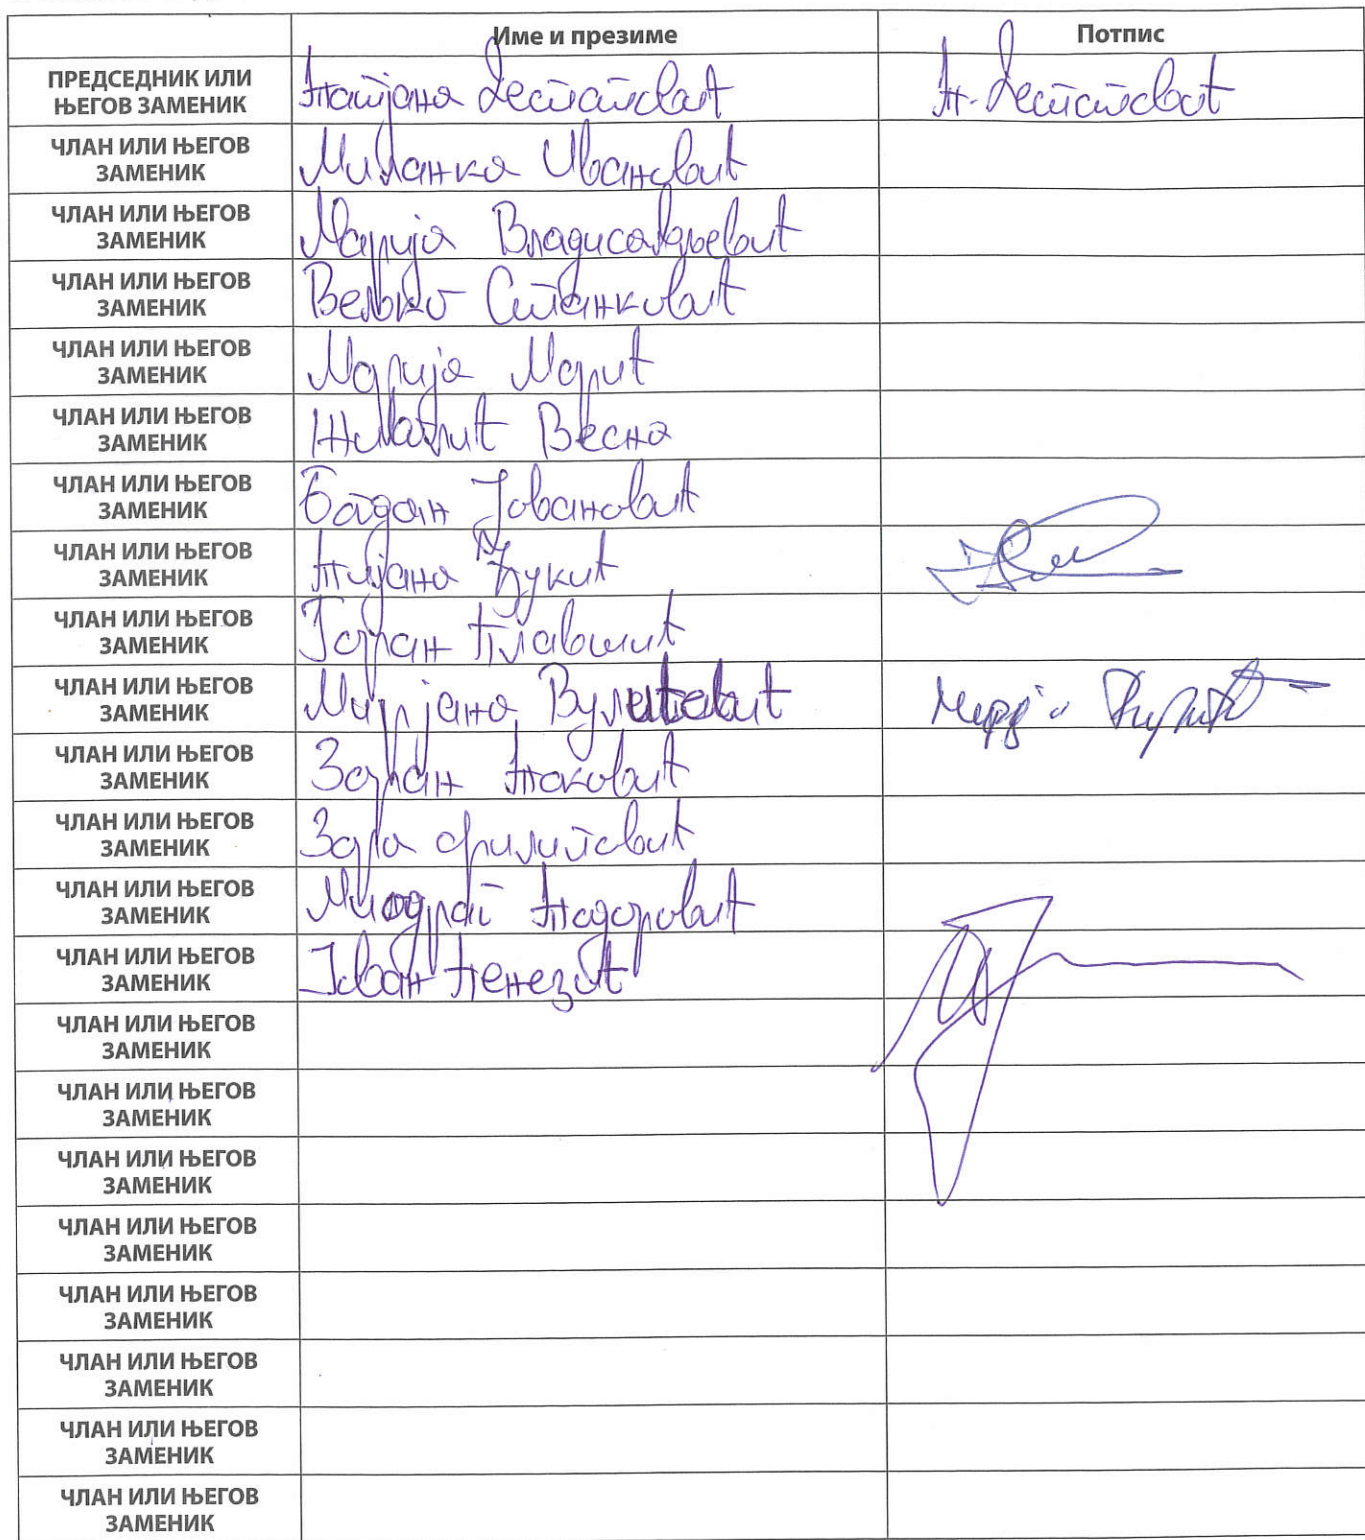 Име и презиме Потпис
ПРЕДСЕДНИК ИЛИ
ЊЕГОВ ЗАМЕНИК
Татјана Деспотовић Т. Деспотовић
ЧЛАН ИЛИ ЊЕГОВ
ЗАМЕНИК
Миланка Ивановић
ЧЛАН ИЛИ ЊЕГОВ
ЗАМЕНИК
Марија Владисављевић
ЧЛАН ИЛИ ЊЕГОВ
ЗАМЕНИК
Вељко Станковић
ЧЛАН ИЛИ ЊЕГОВ
ЗАМЕНИК
Марија Марић
ЧЛАН ИЛИ ЊЕГОВ
ЗАМЕНИК
Весна
ЧЛАН ИЛИ ЊЕГОВ
ЗАМЕНИК
Богдан Јовановић
ЧЛАН ИЛИ ЊЕГОВ
ЗАМЕНИК
Тијана Ђукић
ЧЛАН ИЛИ ЊЕГОВ
ЗАМЕНИК
Горан Плавшић
ЧЛАН ИЛИ ЊЕГОВ
ЗАМЕНИК
Мирјана
ЧЛАН ИЛИ ЊЕГОВ
ЗАМЕНИК
Зоран Ђоковић
ЧЛАН ИЛИ ЊЕГОВ
ЗАМЕНИК
Зора Филиповић
ЧЛАН ИЛИ ЊЕГОВ
ЗАМЕНИК
Миодраг Тодоровић
ЧЛАН ИЛИ ЊЕГОВ
ЗАМЕНИК
Јован Пенезић
ЧЛАН ИЛИ ЊЕГОВ
ЗАМЕНИК
ЧЛАН ИЛИ ЊЕГОВ
ЗАМЕНИК
ЧЛАН ИЛИ ЊЕГОВ
ЗАМЕНИК
ЧЛАН ИЛИ ЊЕГОВ
ЗАМЕНИК
ЧЛАН ИЛИ ЊЕГОВ
ЗАМЕНИК
ЧЛАН ИЛИ ЊЕГОВ
ЗАМЕНИК
ЧЛАН ИЛИ ЊЕГОВ
ЗАМЕНИК
ЧЛАН ИЛИ ЊЕГОВ
ЗАМЕНИК